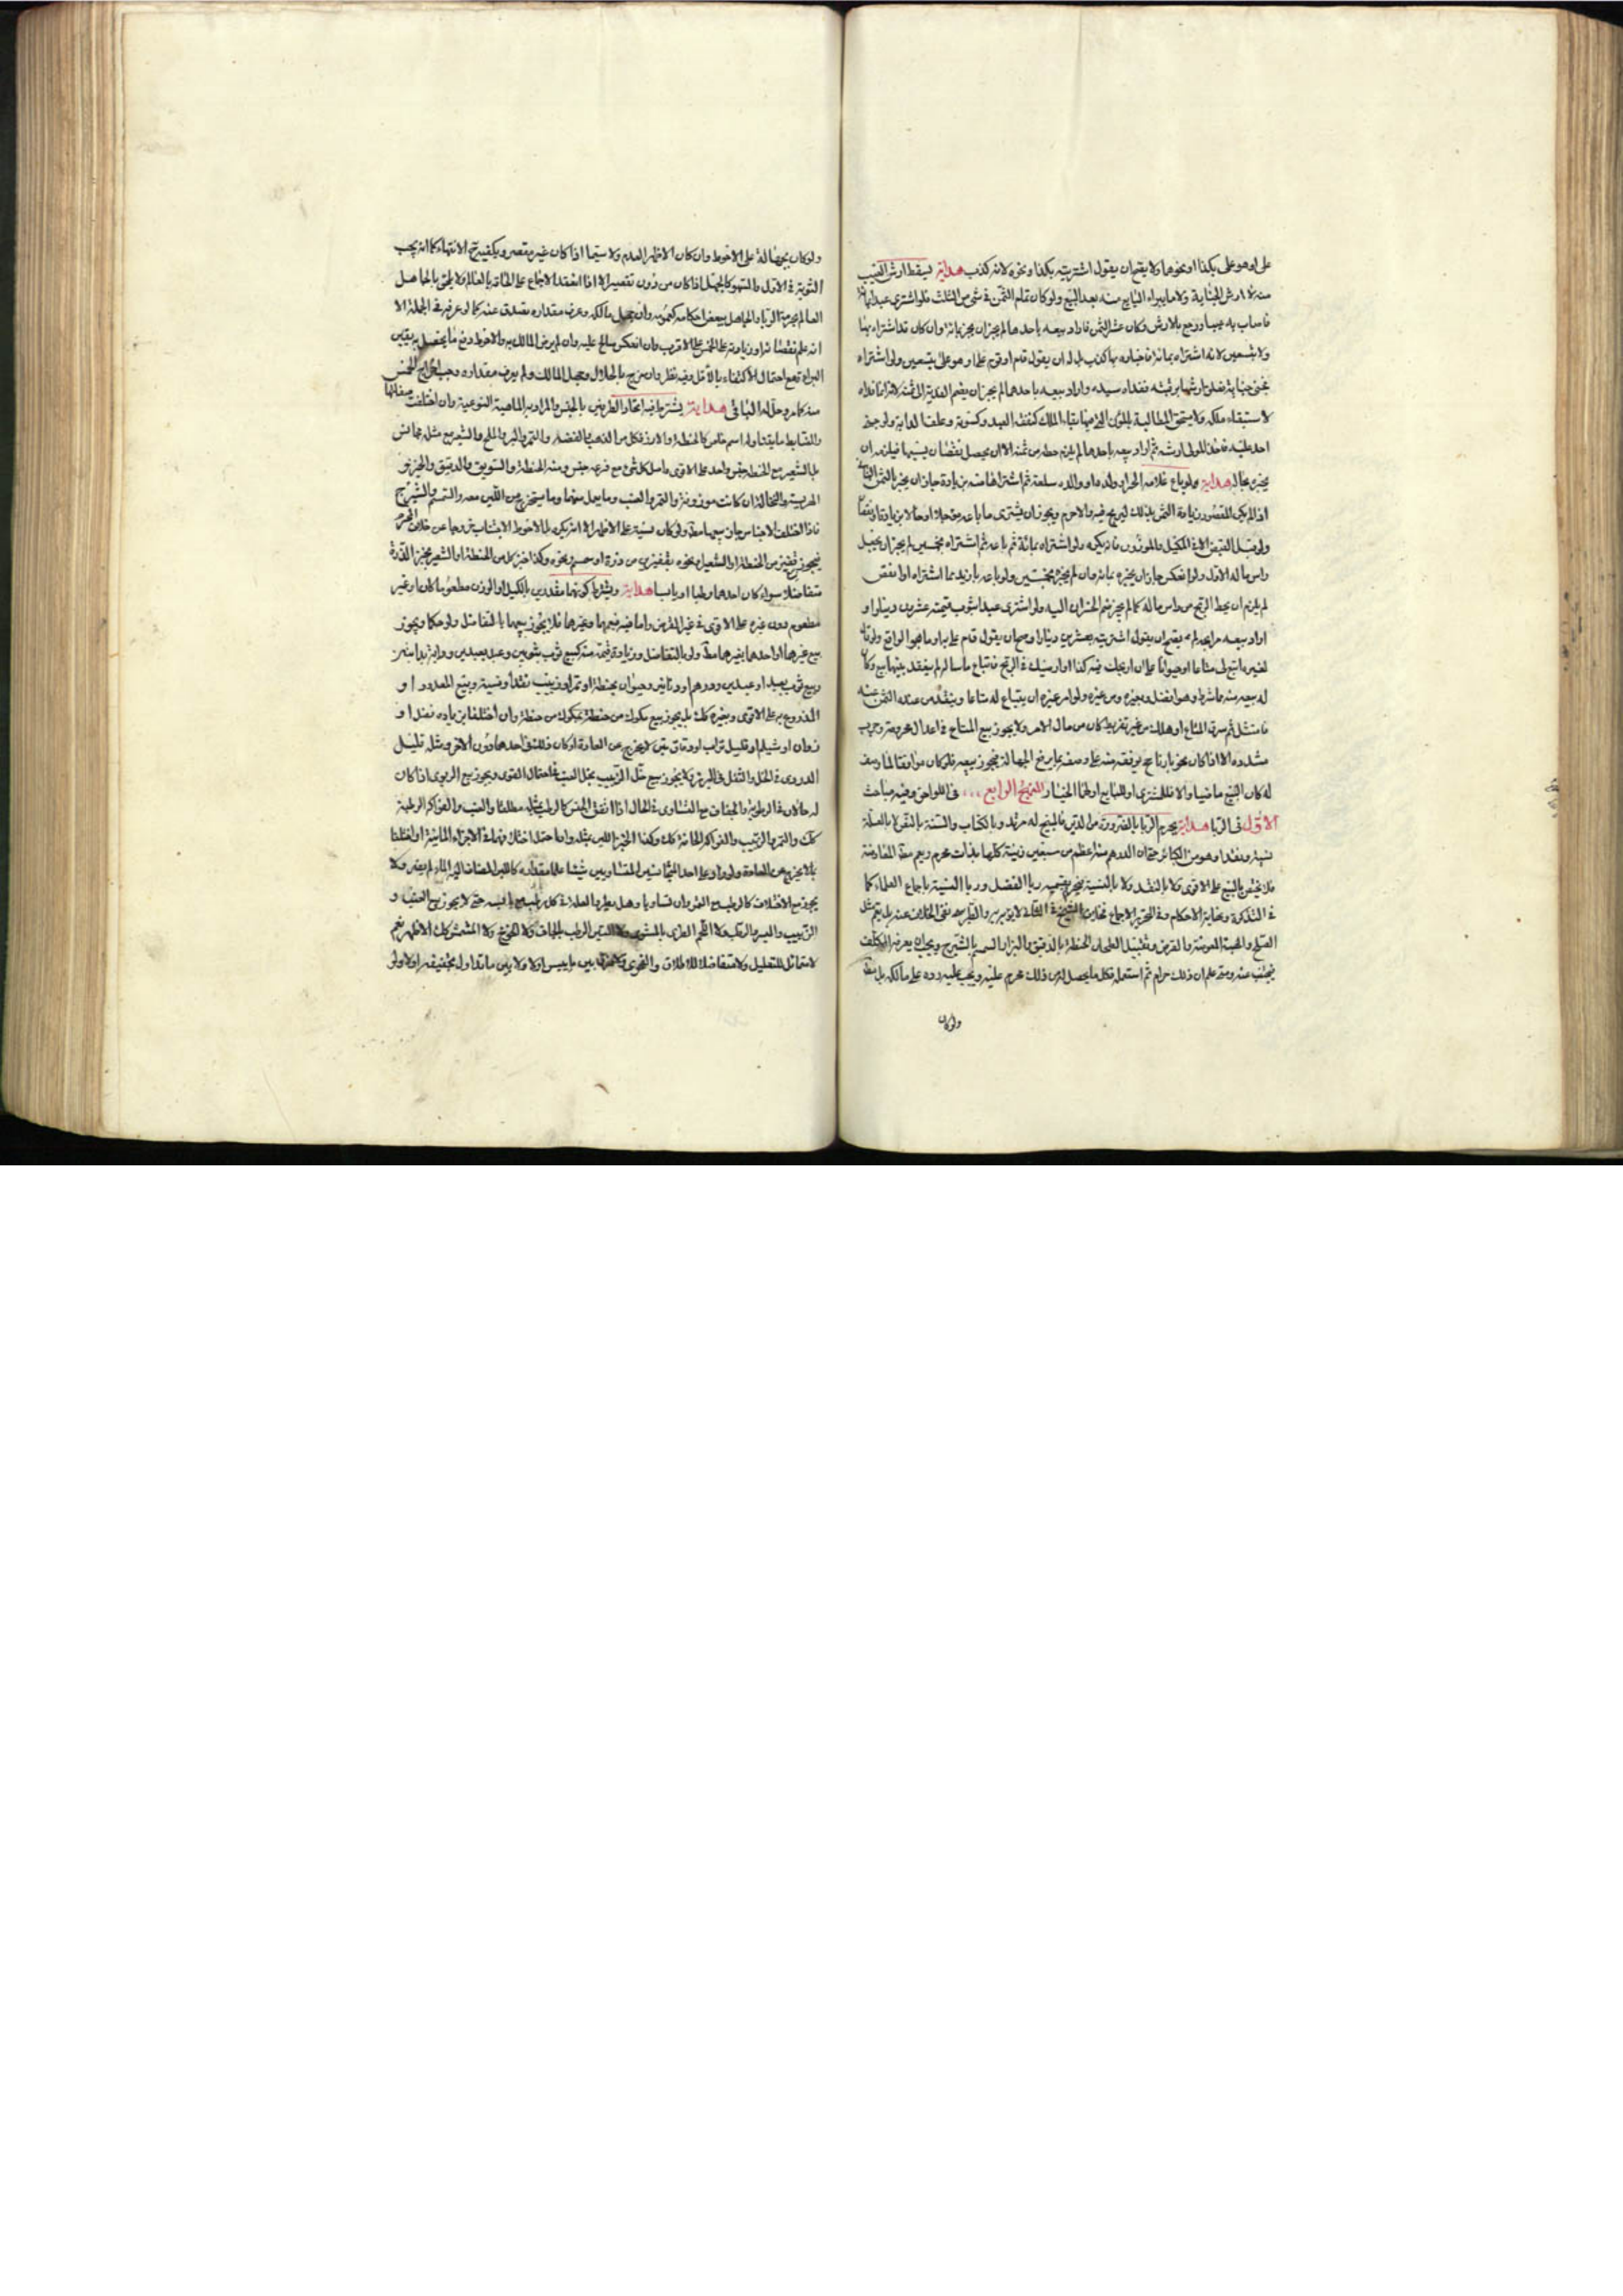 على او هو على بكذا او نحوها ولا يقبح ان يقول اشتريته بكذا ونحوه لانه كذب هداية يسقط ارش العيب
منه لا ارش الجناية ولا ما يبراه البايع منه بعد البيع ولو كان قلم الثمن في شيء من الثلث فلو اشترى عبدا بمائة
فاصاب به عيبا ورجع بالارش وكان عشر الثمن فاراد بيعه باحدهما لم يجز ان يخبر بمائة وان كان قد اشتراه بها
ولا بتسعين لانه اشتراه بمائة فاخباره بها كذب بل له ان يقول قام او تقوم على او هو على بتسعين ولو اشتراه
فجنى جناية تعلق ارشها برقبته ففداه سيده واراد بيعه باحدهما لم يجز ان يضم الفدية الى ثمنه لانه انما فداه
لاستبقاء ملكه ولا يستحق المطالبة بالمؤن التي فيها بقاء الملك كنفقة العبد وكسوته وعلف الدابة ولو جنى
احد عليه فاخذ المولى ارشه ثم اراد بيعه باحدهما لم يلزم حطه من ثمنه الا ان يحصل نقصان بسببها فيلزمه ان
يخبر بحاله هداية ولو باع غلامه الحر او ولده او والده سلعة ثم اشتراها منه بزيادة جاز ان يخبر بالثمن الثاني
اذا لم يكن المقصود زيادة الثمن بذلك ليربح فيه والا حرم ويجوز ان يشترى ما باعه مؤجلا او حالا بزيادة او نقصان
ولو قبل القبض الا في المكيل والموزون فانه يكره ولو اشتراه بمائة ثم باعه ثم اشتراه بخمسين لم يجز ان يجعل
راس ماله الاول ولو انعكس جاز ان يخبره بمائة وان لم يخبره بخمسين ولو باعه بازيد مما اشتراه او انقص
لم يلزم ان يحط الربح من راس ماله كما لم يجز ضم الخسران اليه ولو اشترى عبدا بثوب قيمته عشرون دينارا و
اراد بيعه مرابحة لم يقبح ان يقول اشتريته بعشرين دينارا وصح ان يقول قام على بها وما هو الواقع ولو قال
لغيره ابتع لى متاعا او حيوانا على ان اربحك فيه كذا او ارضيك في الربح فابتاع ما سال لم ينعقد بينهما بيع وكان
له بيعه منه بما شرط وهو افضل وبغيره ومن غيره ولو امر غيره ان يبتاع له متاعا وينقد من عنده الثمن عنه
فامتثل ثم سرق المتاع او هلك من غير تفريط كان من مال الامر ولا يجوز بيع المتاع في اعدال محزومة وجرب
مشدودة الا اذا كان بحوزته بارنامج يوقفه منه على وصفه بما يرفع الجهالة فيجوز بيعه فلو كان موافقا لما وصف
له كان البيع ماضيا والا فللمشترى او للبايع او لهما الخيار المنهج الرابع ... في اللواحق وفيه مباحث
الاول في الربا هداية يحرم الربا بالضرورة من الدين فالمبيح له مرتد وبالكتاب والسنة بالنقل بالعلة
نسية ونقدا وهو من الكبائر حتى ان الدرهم منه اعظم من سبعين زنية كلها بذات محرم ويعم مطلق المعاوضة
فلا يختص بالبيع على الاقوى ولا بالنقد ولا بالنسية فيحرم بقسميه ربا الفضل وربا النسية باجماع العلماء كما
في التذكرة ونهاية الاحكام وفي التحرير الاجماع
الصلح والهبة المعوضة والقرض وتبديل الطحان الحنطة بالدقيق والبزار السمسم بالشيرج ويجب ان يعرفه المكلف
فيجتنب عنه ومتى علم ان ذلك حرام ثم استعمله فكل ما يحصل له من ذلك محرم عليه ويجب عليه رده على مالكه بل مطلقا
ولو كان
ولو كان بجهالة على الاحوط وان كان الاظهر العدم ولا سيما اذا كان غير مقصر ويكفيه ح الانتهاء كما انه يجب
التوبة في الاول والسهو كالجهل اذا كان من دون تقصير الا اذا انعقد الاجماع على الحاقه بالعالم ولا يلحق بالجاهل
العالم بحرمة الربا والجاهل ببعض احكامه كعمومه وان جهل مالكه وعرف مقداره تصدق عنه كما لو عرفه في الجملة الا
انه علم نقصانه او زيادته على الخمس على الاقرب وان انعكس صالح عليه وان لم يرض المالك به والاحوط دفع ما يحصل به يقين
البراءة مع احتمال الاكتفاء بالاقل وفيه نظر وان مزج بالحلال وجهل المالك ولم يعرف مقداره وجب اخراج الخمس
منه كما مر وحل له الباقي هداية يشترط فيه اتحاد الطرفين بالجنس والمراد به الماهية النوعية وان اختلفت صفاتها
والضابط ما يتناوله اسم خاص كالحنطة والارز فكل من الذهب والفضة والتمر والبر والملح والشعير مع مثله مجانس
بل الشعير مع الحنطة جنس واحد على الاقوى واصل كل شيء مع فرعه جنس ومنه الحنطة والسويق والدقيق والخبز و
الهريسة والنخالة ان كانت موزونة والتمر والعنب وما يعمل منهما وما يستخرج من اللبن معه والسمسم والشيرج
فاذا اختلف الاجناس جاز بيعها مطلقا ولو كان نسية على الاظهر الا انه يكره بل الاحوط الاجتناب خروجا عن خلاف المحرم
فيجوز بيع قفيز من الحنطة او الشعير او نحوه بقفيزين من ذرة او سمسم ونحوه وكذا خبز كل من الحنطة او الشعير بخبز الذرة
متفاضلا سواء كان احدهما رطبا او يابسا هداية ويشترط كونهما مقدرين بالكيل او الوزن مطعوما كان او غير
مطعوم دون غيره على الاقوى في غير القرض واما فيه ففيهما وغيرهما فلا يجوز بيعهما بالتفاضل ولو حكما ويجوز
بيع غيرهما او احدهما بغيرهما مطلقا ولو بالتفاضل وزيادة قيمة منه كبيع ثوب بثوبين وعبد بعبدين ودابة بدابتين
وبيع ثوب بعبد او عبدين ودرهم او دنانير وحيوان بحنطة او تمر او زبيب نقدا ونسية وبيع المعدود او
المذروع به على الاقوى وبغيره كك بل يجوز بيع مكوك من حنطة بمكوك من حنطة وان اختلفا بزيادة نقد او
زوان او شيلم او قليل تراب او دقاق تبن لا يخرج عن العادة او كان ذلك في احدهما دون الاخر ومثله قليل
الدردى في الخل والثفل في البزر ولا يجوز بيع خل الزبيب بخل العنب على احتمال القوى ويجوز بيع الربوى اذا كان
له حالان في الرطوبة والجفاف مع التساوى في الحال اذا اتفق الجنس كالرطب بمثله مطلقا والعنب والفواكه الرطبة
كك والتمر والزبيب والفواكه الجافة كك وكذا الخبز واللبن بمثله واما خل اختلافهما في الاجزاء المائية او اختلفا
بما لا يخرج عن العادة ولو زاد على احد المتجانسين المتساويين شيئا علم مقداره كاللبن المضاف اليه الماء لم يضر ولا
يجوز مع الاختلاف كالرطب مع التمر وان تساويا وهل يطرد العلة في كل رطب مع يابسه حتى لا يجوز بيع العنب و
الزبيب والبسر والرطب ولا اللحم الطرى بالمشوى ولا التين الرطب بالجاف ولا الخوخ ولا المشمش كك الاظهر نعم
لا متماثلا للتعليل ولا متفاضلا للاطلاق والفحوى ولا فرق بين ما ييبس او لا ولا بين ما تداول تجفيفه او لا ولو